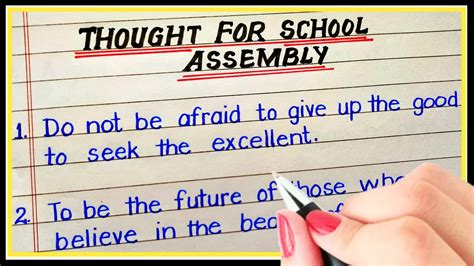 THOUGHT FOR SCHOOL
ASSEMBLY
1. Do not be afraid to give up the good
to seek the excellent.
2. To be the future of those who
believe in the